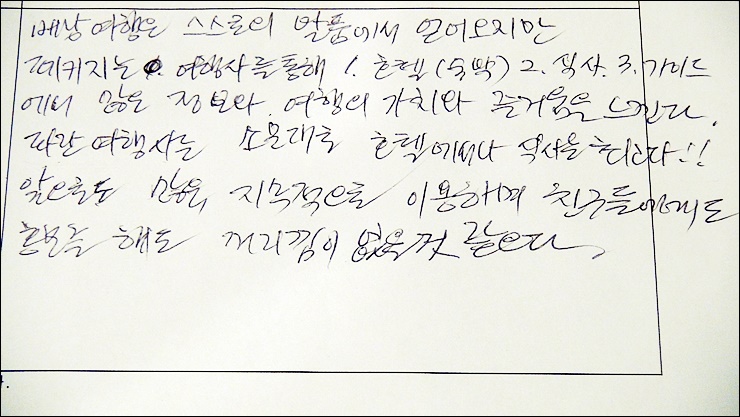 배낭여행은 스스로의 발품에서 얻어오지만
패키지는 여행사를 통해 1. 호텔(숙박) 2. 식사. 3. 가이드
에서 많은 정보와. 여행의 가치와 즐거움을 느낀다.
파란여행사는 소문대로 호텔에서나 식사을 최고다!!
앞으로도 많은, 지속적으로 이용하며 친구들에게도
홍보를 해도 거리낌이 없을것 같으다.